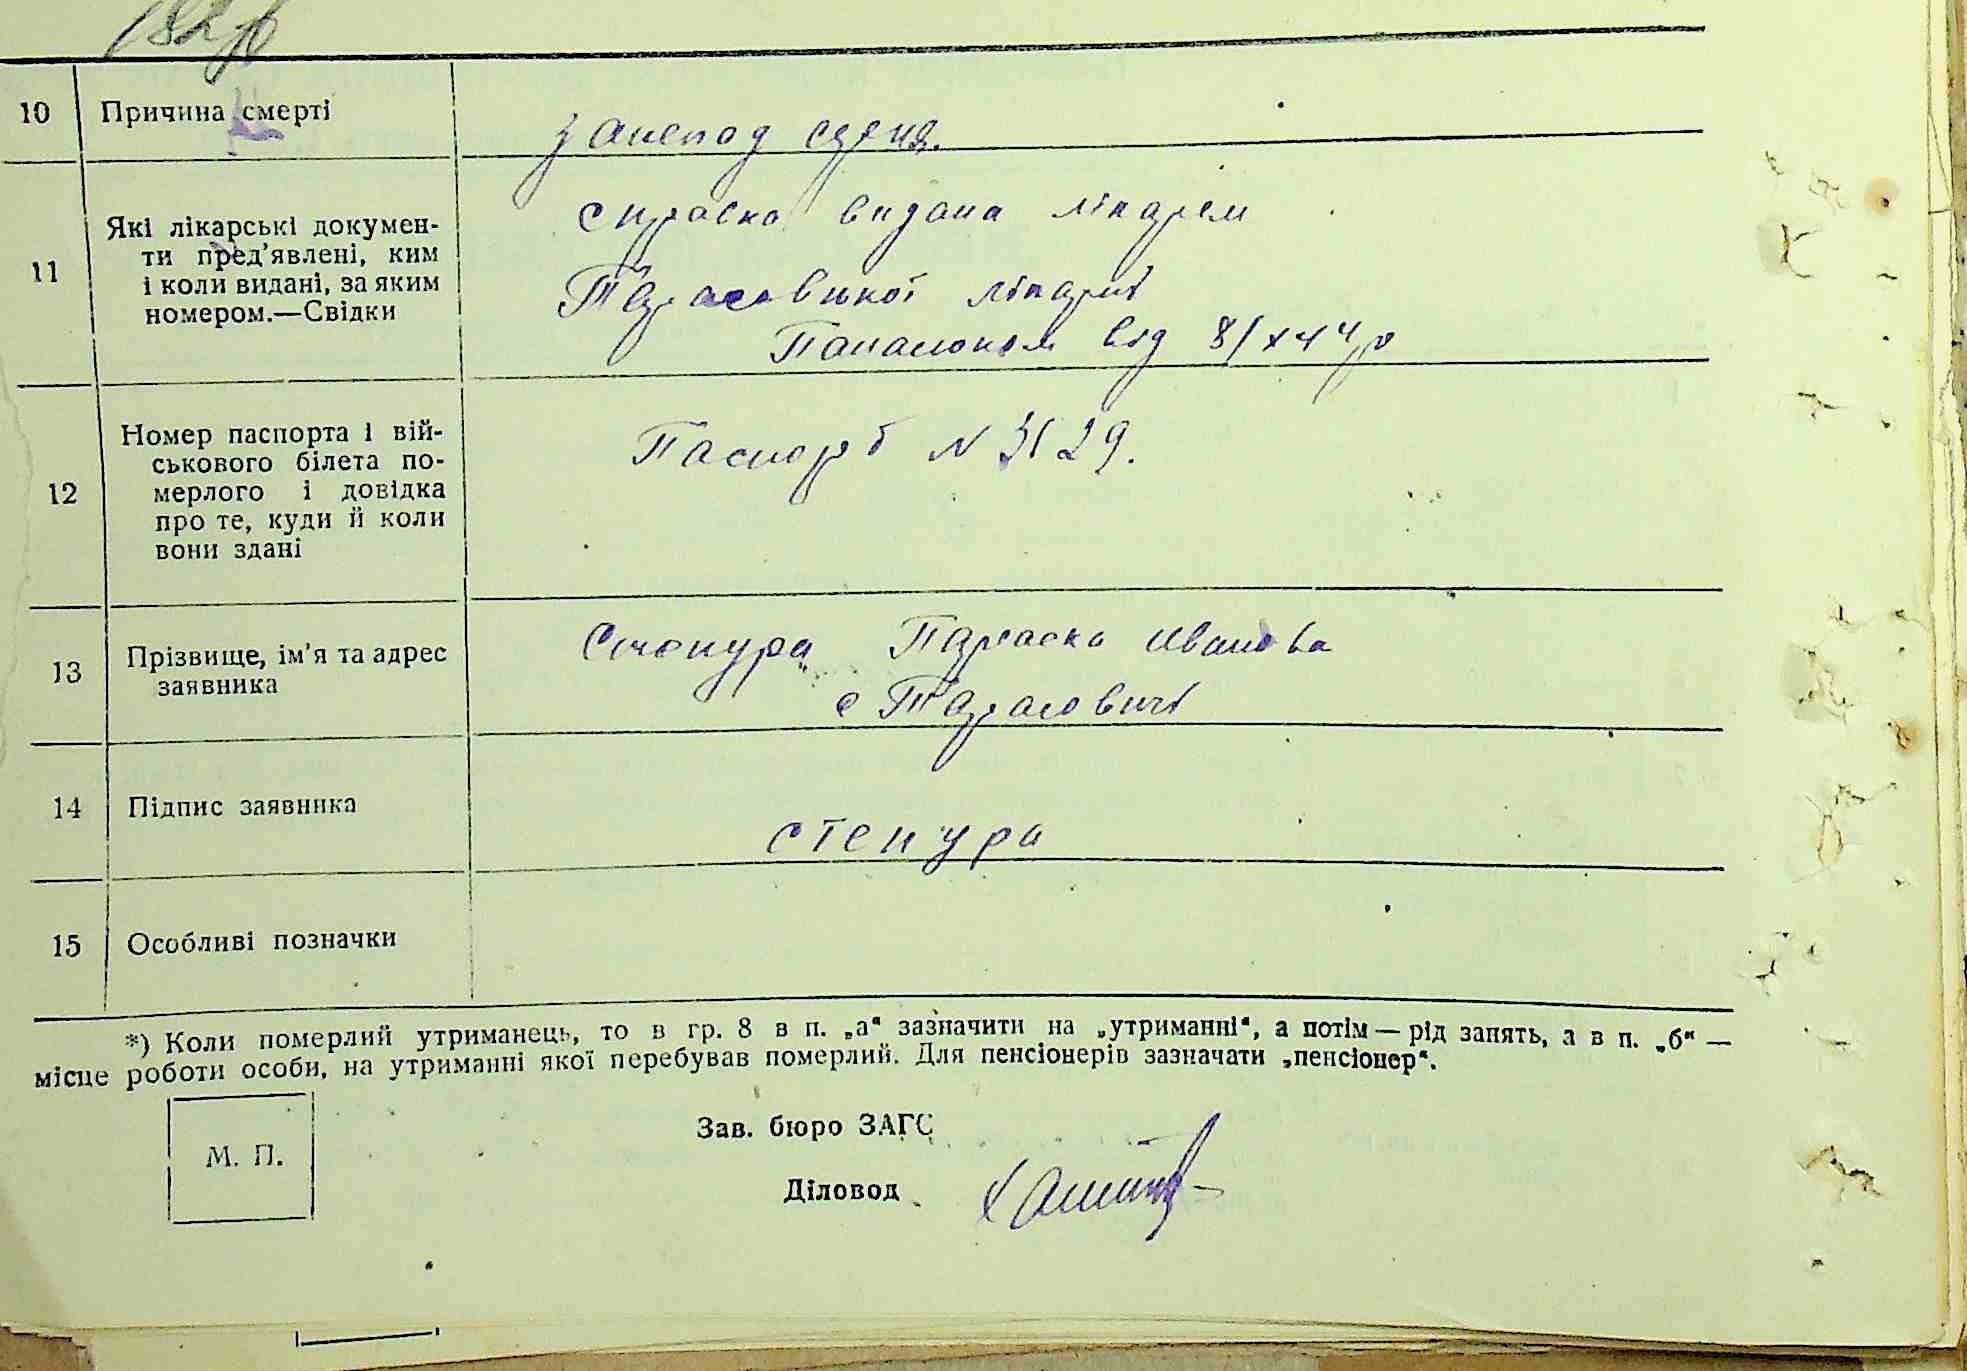 10 Причина смерті
занепад серця.
11 Які лікарські докумен-
ти пред’явлені, ким
і коли видані, за яким
номером.—Свідки
справка видана лікарем
Тарасівської лікарні
від 8/X 44 р
12 Номер паспорта і вій-
ськового білета по-
мерлого і довідка
про те, куди й коли
вони здані
Паспорт N
13 Прізвище, ім’я та адрес
заявника
Степура Параска Иванова
с Тарасовичі
14 Підпис заявника
степура
15 Особливі позначки
*) Коли померлий утриманець, то в гр. 8 в п. „а“ зазначити на „утриманні“, а потім — рід занять, а в п. „б“ —
місце роботи особи, на утриманні якої перебував померлий. Для пенсіонерів зазначати „пенсіонер“.
М. П.
Зав. бюро ЗАГС
Діловод